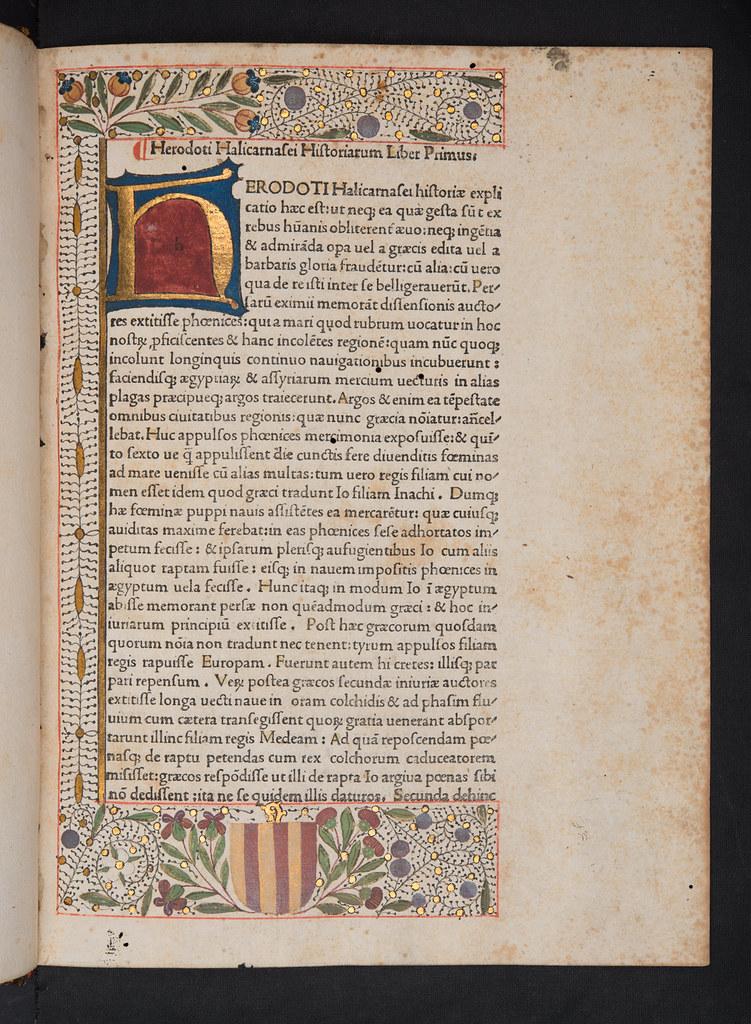 Herodoti Halicarnasei Historiarum Liber Primus.
HERODOTI Halicarnasei historiæ expli
catio hæc est: ut neq; ea quæ gesta sūt ex
rebus hūanis obliterent̃ æuo: neq; ingētia
& admirāda opa uel a græcis edita uel a
barbaris gloria fraudētur: cū alia: cū uero
qua de re isti inter se belligerauerūt. Per⸗
sarū eximii memorāt dissensionis aucto⸗
res extitisse phœnices: qui a mari quod rubrum uocatur in hoc
nostꝝ ꝓficiscentes & hanc incolētes regionē: quam nūc quoq;
incolunt longinquis continuo nauigationibus incubuerunt:
faciendisq; ægyptiaꝝ & assyriarum mercium uecturis in alias
plagas præcipueq; argos traiecerunt. Argos & enim ea tēpestate
omnibus ciuitatibus regionis: quæ nunc græcia nōiatur: añcel⸗
lebat. Huc appulsos phœnices mercimonia exposuisse: & quī⸗
to sexto ue q̄ appulissent die cunctis fere diuenditis fœminas
ad mare uenisse cū alias multas: tum uero regis filiam cui no⸗
men esset idem quod græci tradunt Io filiam Inachi. Dumq;
hæ fœminæ puppi nauis assistētes ea mercarētur: quæ cuiusq;
auiditas maxime ferebat: in eas phœnices sese adhortatos im⸗
petum fecisse: & ipsarum plerisq; aufugientibus Io cum aliis
aliquot raptam fuisse: eisq; in nauem impositis phœnices in
ægyptum uela fecisse. Hunc itaq; in modum Io ī ægyptum
abisse memorant persæ non quēadmodum græci: & hoc in⸗
iuriarum principiū extitisse. Post hæc græcorum quosdam
quorum nōia non tradunt nec tenent: tyrum appulsos filiam
regis rapuisse Europam. Fuerunt autem hi cretes: illisq; par
pari repensum. Veꝝ postea græcos secundæ iniuriæ auctores
extitisse longa uecti naue in oram colchidis & ad phasim flu⸗
uium cum cætera transegissent quoꝝ gratia uenerant abspor⸗
tarunt illinc filiam regis Medeam: Ad quā reposcendam pœ⸗
nasq; de raptu petendas cum rex colchorum caduceatorem
misisset: græcos respōdisse ut illi de rapta Io argiua pœnas sibi
nō dedissent: ita ne se quidem illis daturos. Secunda dehinc